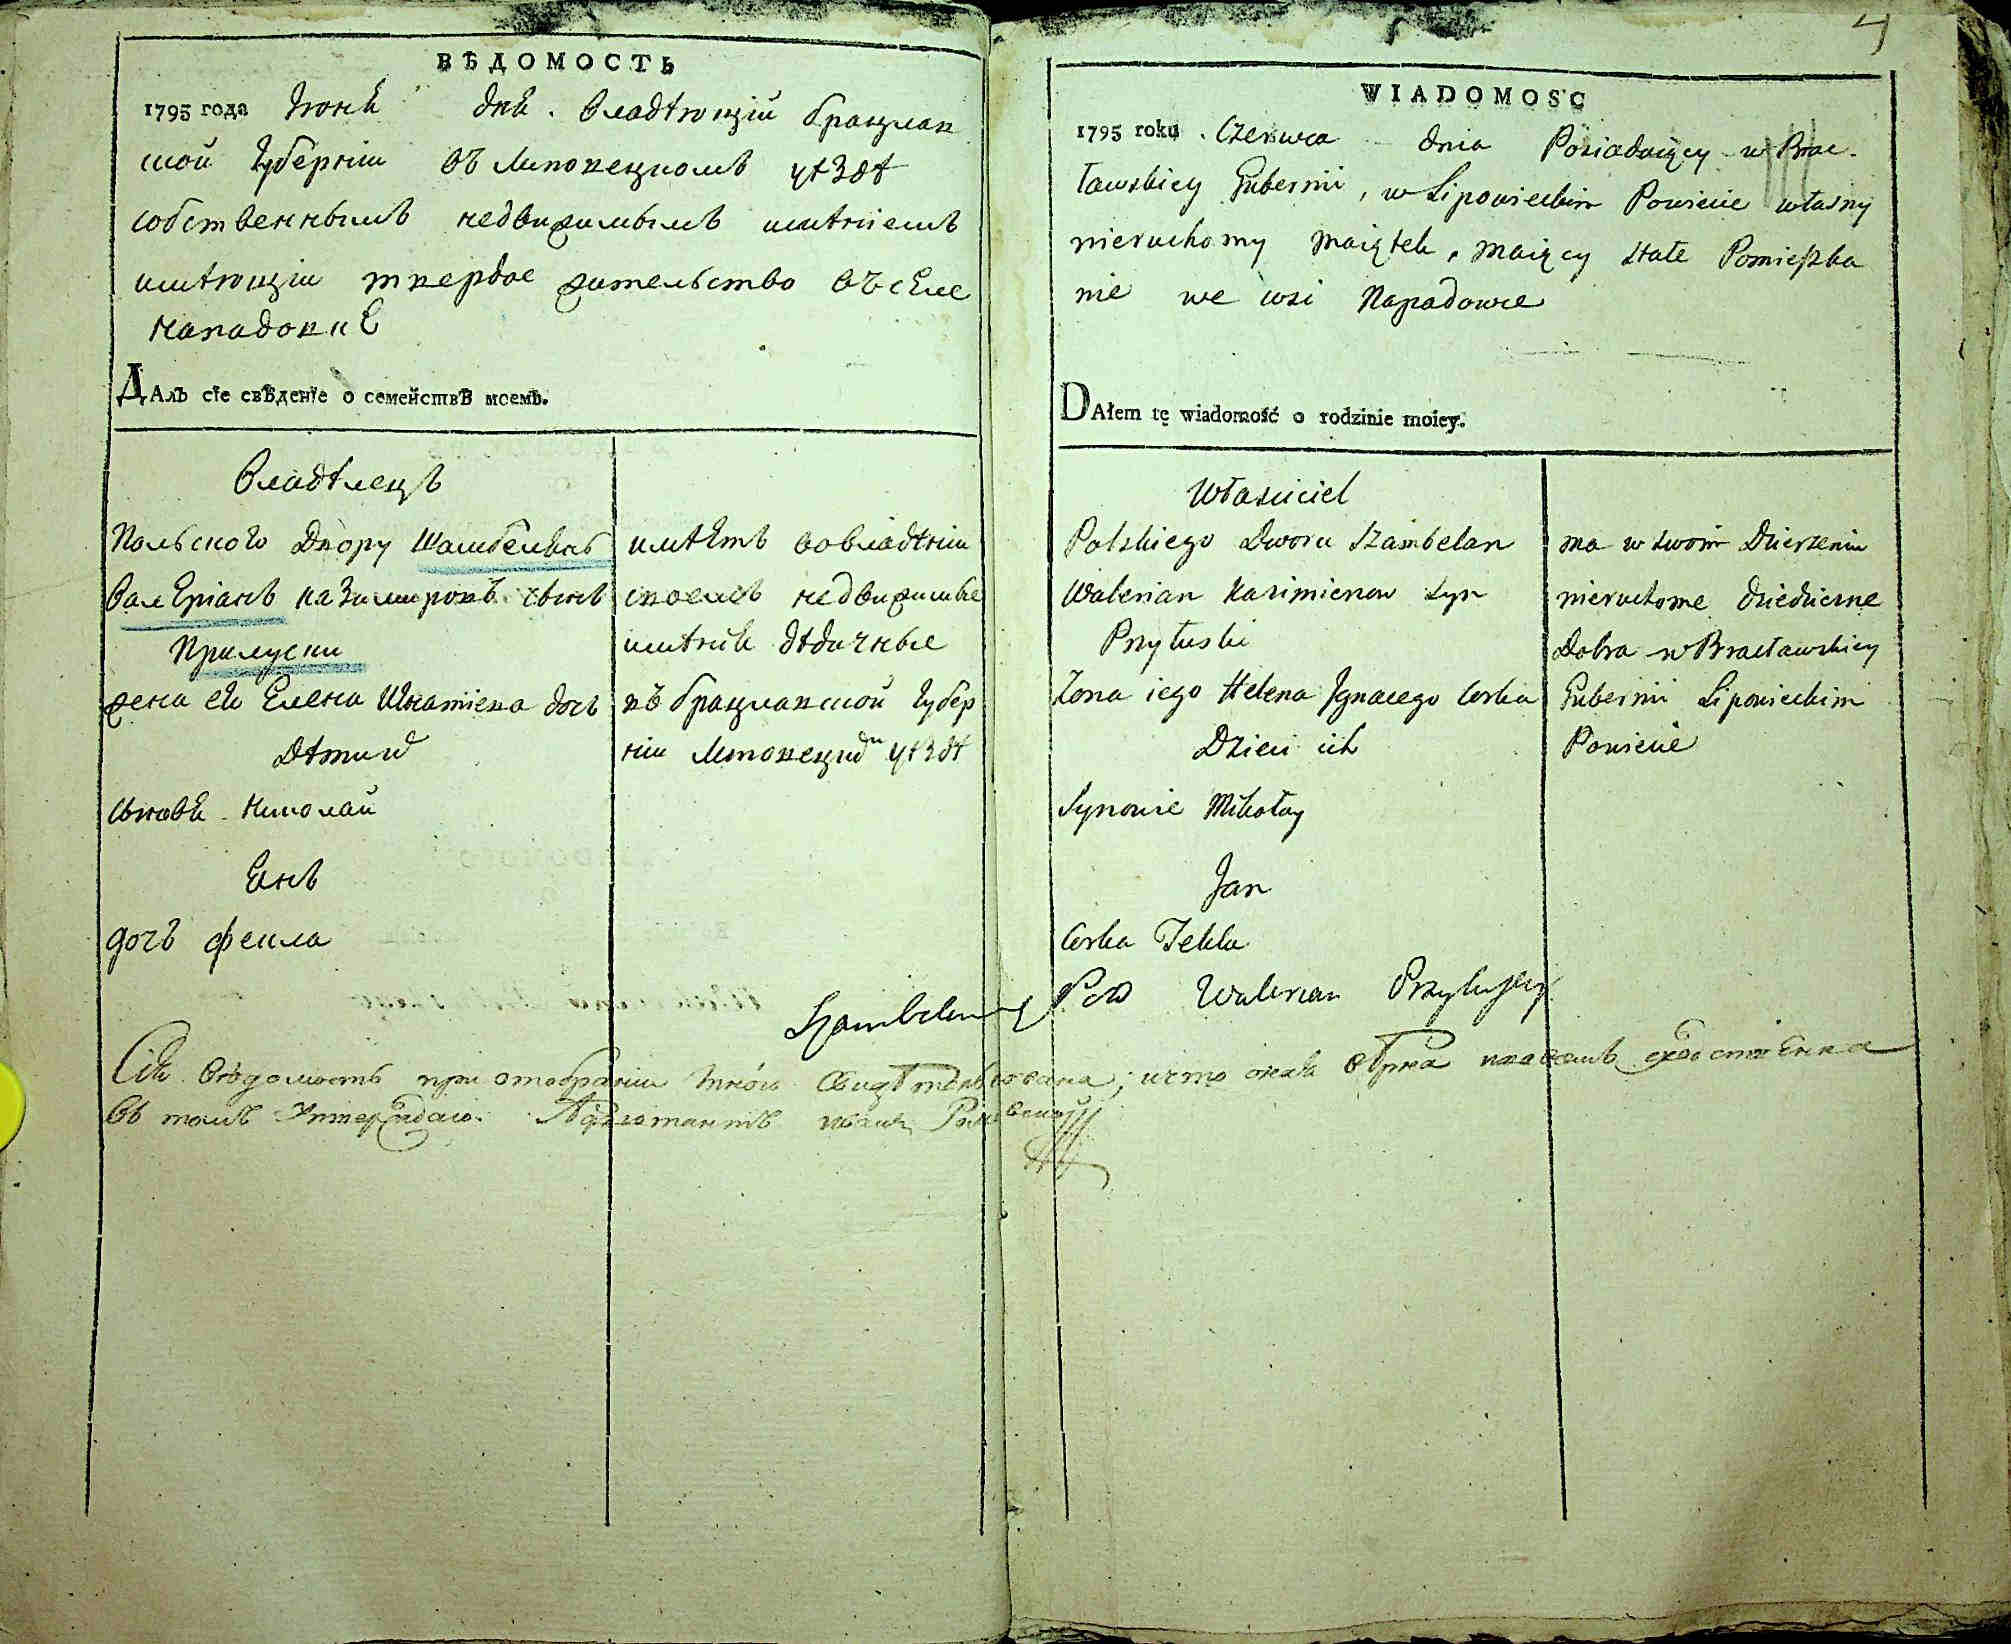 ВѢДОМОСТЬ
1795 года Iюня дня. владѣющiй брацлав
ской губернiи въ липовецкомъ уѣздѣ
собственнымъ недвижимымъ имѣнiемъ
имѣющiи твердое жительство въ селе
нападовкѣ
ДАлъ сїе свѣденїе о семействѣ моемъ.
владѣлецъ
Польского двору Шамбелянъ
валерiанъ казимировъ сынъ
Прилуски
жена ея Елена Игнатiева дочь
дѣти их
сыновя Николай
Янъ
дочъ фекла
имѣетъ вовладѣнiи
своемъ недвижимые
имѣнiя дѣдичные
въ брацлавской губер
нiи липовецкоъ уѣздѣ
4
WIADOMOSC
1795 roku Czerwca dnia Posiadaiący w Brac-
ławskiey Gubernii, w Lipowieckim Powiecie własny
nieruchomy maiątek, maiący stałe Pomieszka
nie we wsi Napadowce
DAłem tę wiadomość o rodzinie moiey.
Właściciel
Polskiego Dworu Szambelan
Walerian Kazimierzow syn
Przyłuski
Zona iego Helena Ignacego Corka
Dzieci ich
Synowie Mikołay
Jan
Corka Tekla
ma w swoim Dzierzeniu
nieruchome dziedziczne
Dobra w Bracławskiey
Gubernii Lipowieckim
Powiecie
Walerian Przyłuski
Сiя вѣдомость при отобранiи мною свидѣтельствована; и что она вѣрна
въ томъ утверждаю. Адъютантъ